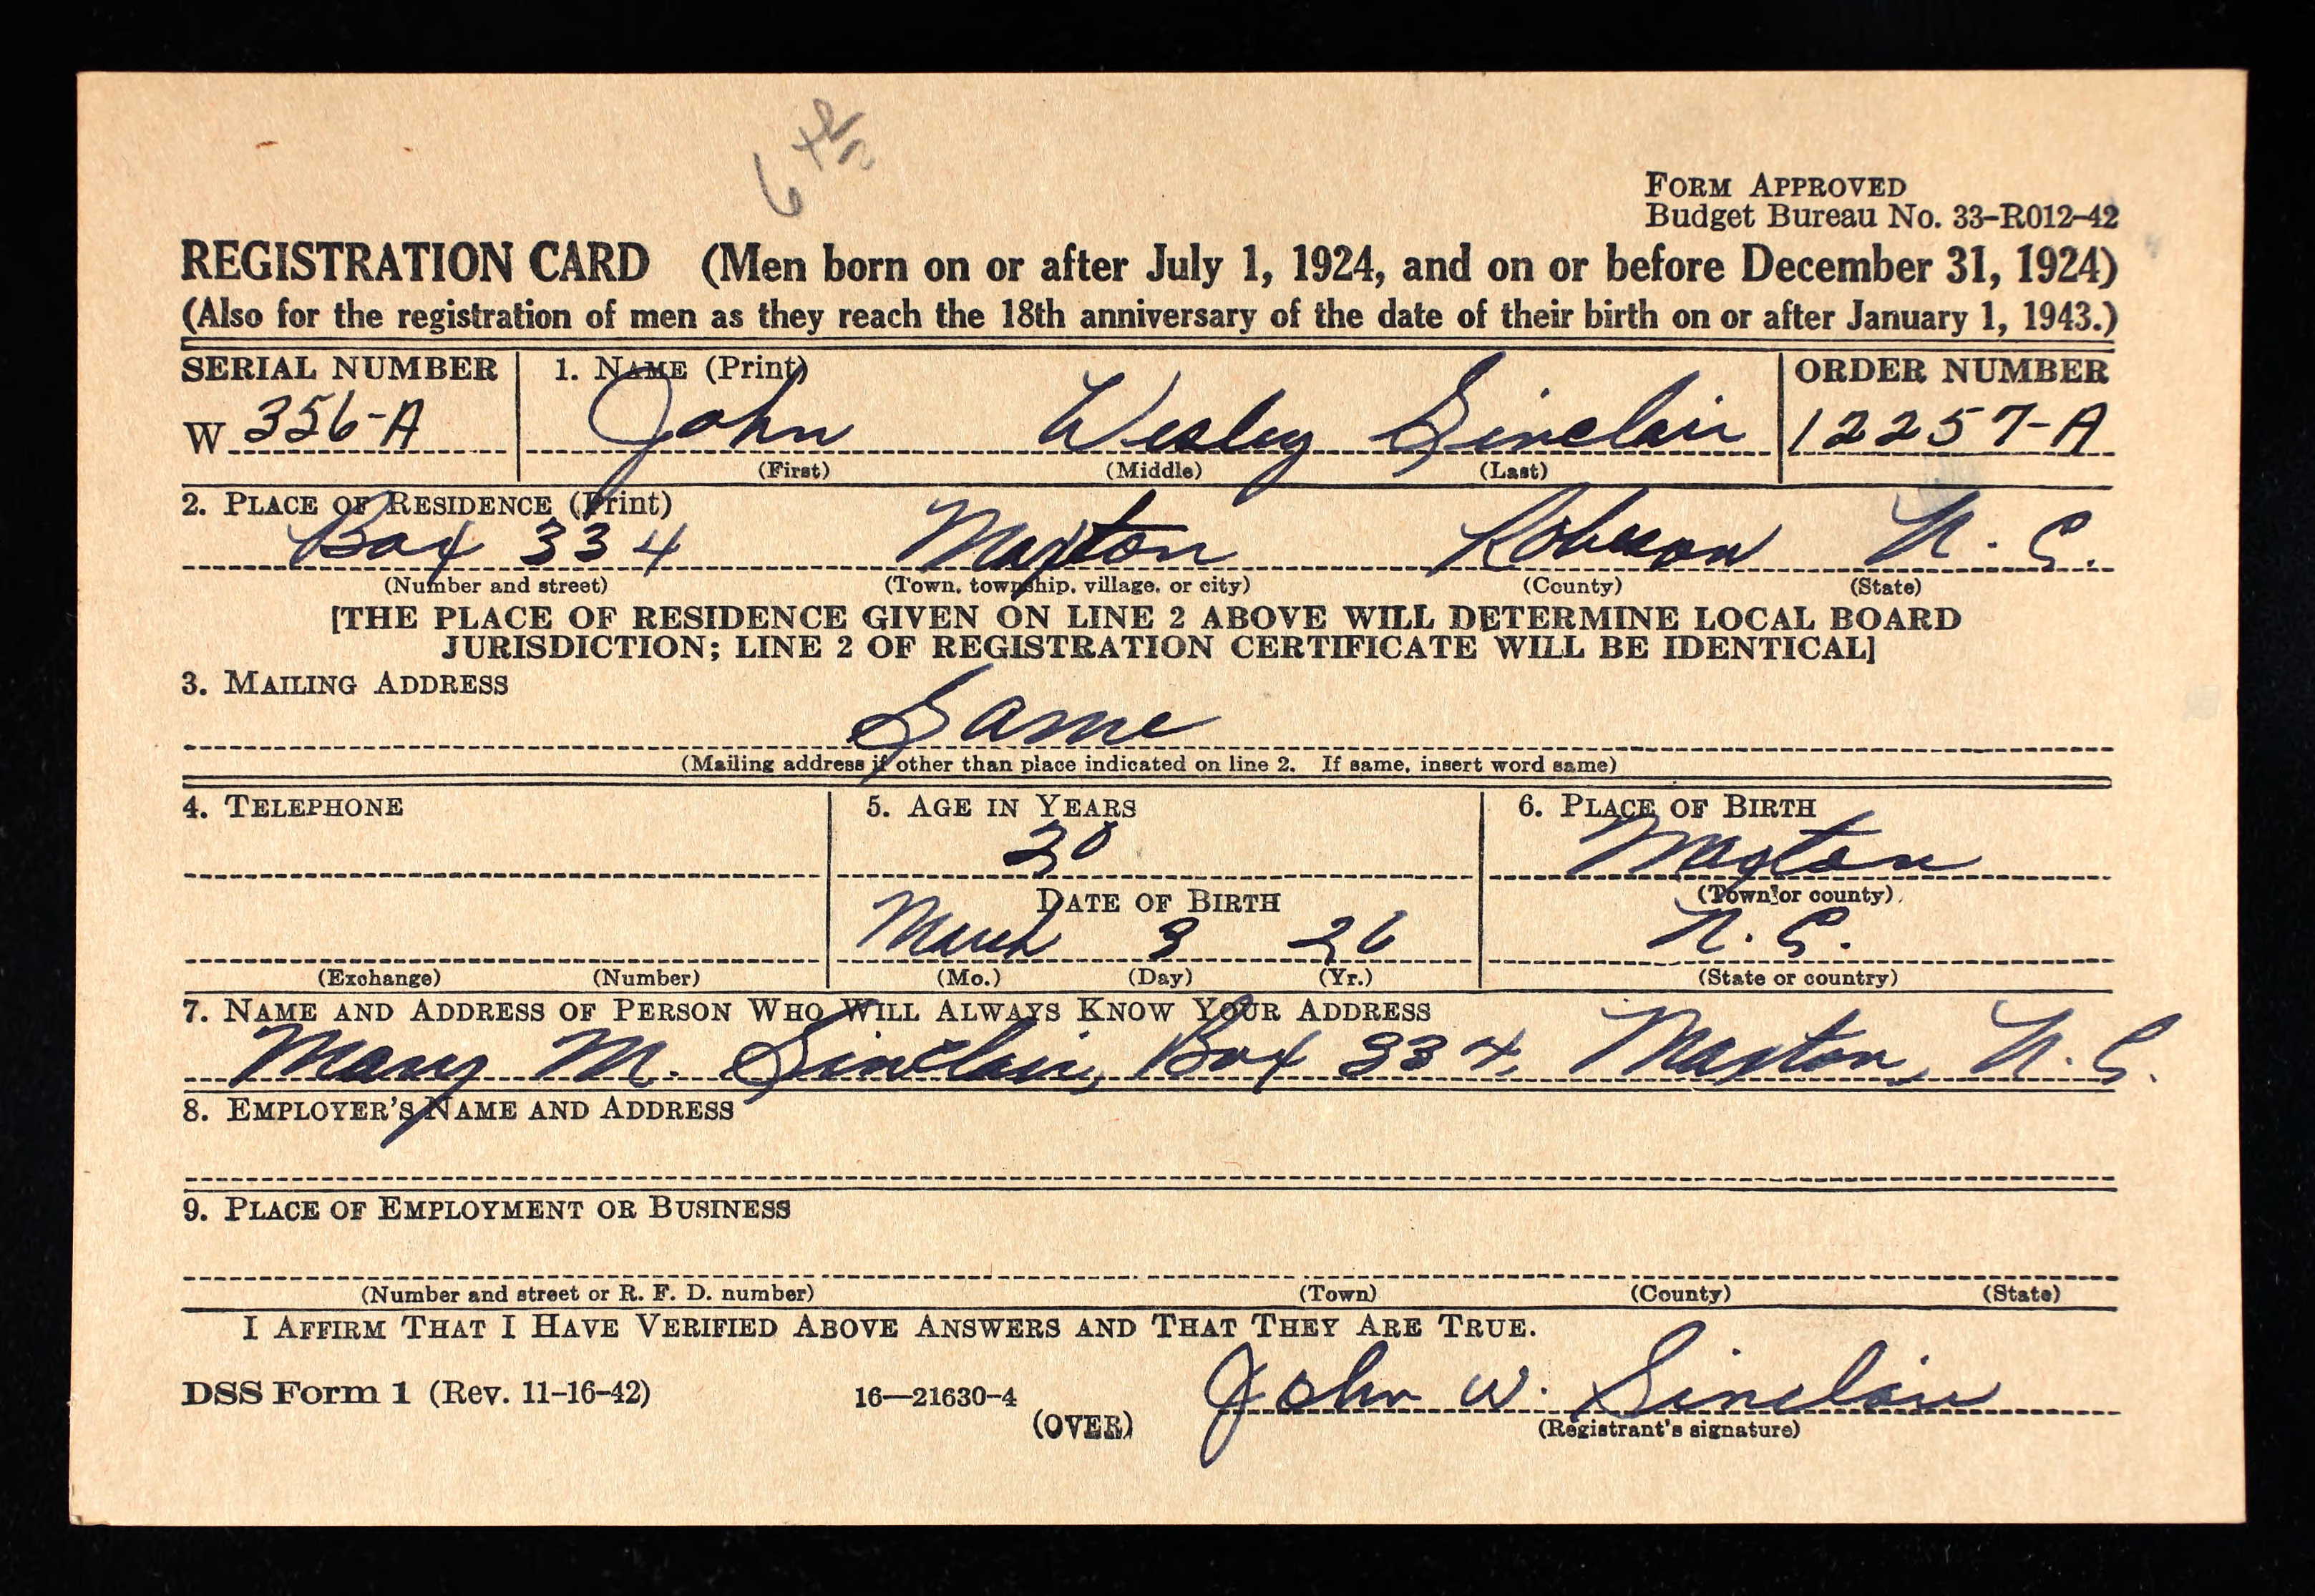 6th
FORM APPROVED
Budget Bureau No. 33-R012-42
REGISTRATION CARD (Men born on or after July 1, 1924, and on or before December 31, 1924)
(Also for the registration of men as they reach the 18th anniversary of the date of their birth on or after January 1, 1943.)
SERIAL NUMBER 1. NAME (Print) ORDER NUMBER
W 356-A John Wesley Sinclair 12257-A
(First) (Middle) (Last)
2. PLACE OF RESIDENCE (Print)
Box 334 Maxton Robeson N. C.
(Number and street) (Town, township, village, or city) (County) (State)
[THE PLACE OF RESIDENCE GIVEN ON LINE 2 ABOVE WILL DETERMINE LOCAL BOARD
JURISDICTION; LINE 2 OF REGISTRATION CERTIFICATE WILL BE IDENTICAL]
3. MAILING ADDRESS
Same
(Mailing address if other than place indicated on line 2. If same, insert word same)
4. TELEPHONE 5. AGE IN YEARS 6. PLACE OF BIRTH
20 Maxton
(Town or county)
DATE OF BIRTH
March 3 26 N. C.
(Exchange) (Number) (Mo.) (Day) (Yr.) (State or country)
7. NAME AND ADDRESS OF PERSON WHO WILL ALWAYS KNOW YOUR ADDRESS
Mary M. Sinclair, Box 334, Maxton, N. C.
8. EMPLOYER'S NAME AND ADDRESS
9. PLACE OF EMPLOYMENT OR BUSINESS
(Number and street or R. F. D. number) (Town) (County) (State)
I AFFIRM THAT I HAVE VERIFIED ABOVE ANSWERS AND THAT THEY ARE TRUE.
DSS Form 1 (Rev. 11-16-42) 16—21630-4 John W. Sinclair
(OVER) (Registrant's signature)